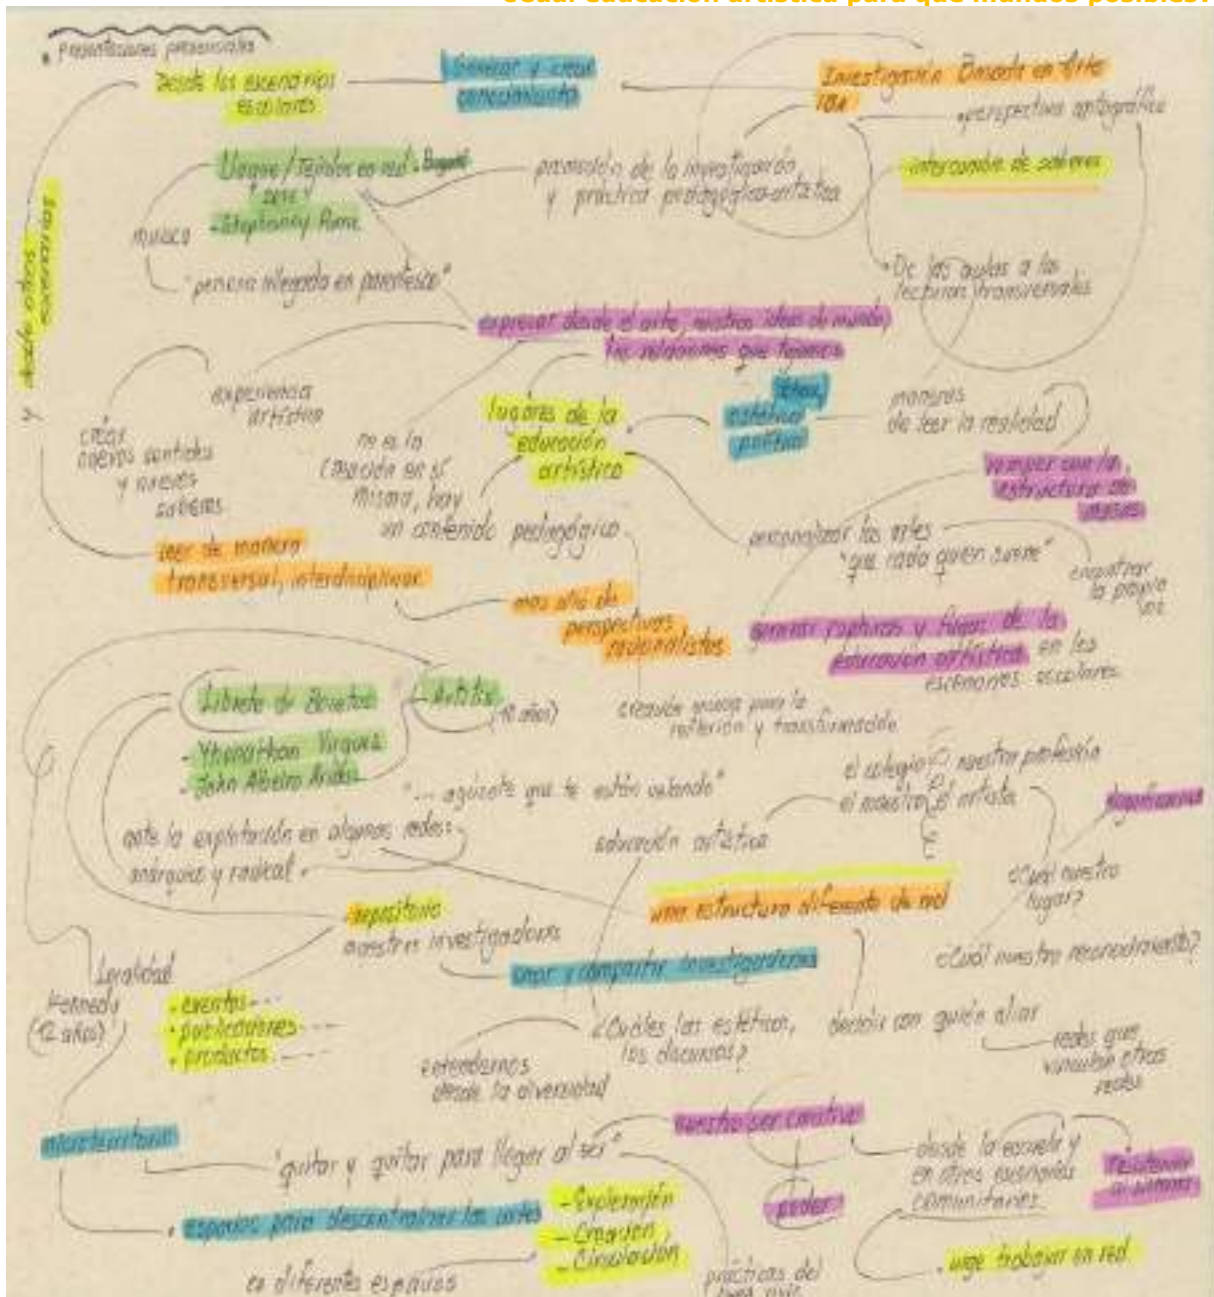 ¿Cuál educación artística para qué mundos posibles?
• Presentaciones presenciales
Desde los escenarios
escolares
Generar y crear
conocimiento
Investigación Basada en Arte
IBA
• perspectiva artográfica
intercambio de saberes
/ Tejidos en red • Bogotá
- Stephany
promoción de la investigación
y práctica pedagógica-artística
"persona allegada en parentesco"
• De las aulas a las
lecturas transversales
expresar desde el arte, nuestras ideas de mundo,
las relaciones que tejemos
experiencia
artística
crear
nuevos sentidos
y nuevos
saberes
no es la
creación en sí
misma, hay
un contenido pedagógico
lugares de la
educación
artística
estético
político
maneras
de leer la realidad
romper con la
estructura de
personalizar las artes
"que cada quien suene"
encontrar
la propia
voz
leer de manera
transversal, interdisciplinar
mas allá de
perspectivas
racionalistas
generar rupturas y fugas de la
educación artística en los
escenarios escolares
Libreta de Bocetos
- Artista
- Yhonathan Virguez
- John Albeiro
creación para la
reflexión y transformación
"... agúzate que te están velando"
el colegio nuestra profesión
el maestro el artista
ante la explotación en algunas redes:
anárquico y radical •
educación artística
¿Cuál nuestro
lugar?
una estructura diferente de red
repositorio
maestros investigadores
¿Cuál nuestro reconocimiento?
crear y compartir investigaciones
Localidad
Kennedy
(12 años)
- eventos ---
• publicaciones ---
• productos ---
¿Cuáles las estéticas,
los discursos?
decidir con quién aliar
redes que
vinculan otras
redes
entendernos
desde la diversidad
microterritorio
nuestro ser creativo
"quitar y quitar para llegar al ser"
desde la escuela y
en otros escenarios
comunitarios
poder
• espacios para descentralizar las artes
- Exploración
- Creación
- Circulación
en diferentes espacios
• urge trabajar en red
prácticas del